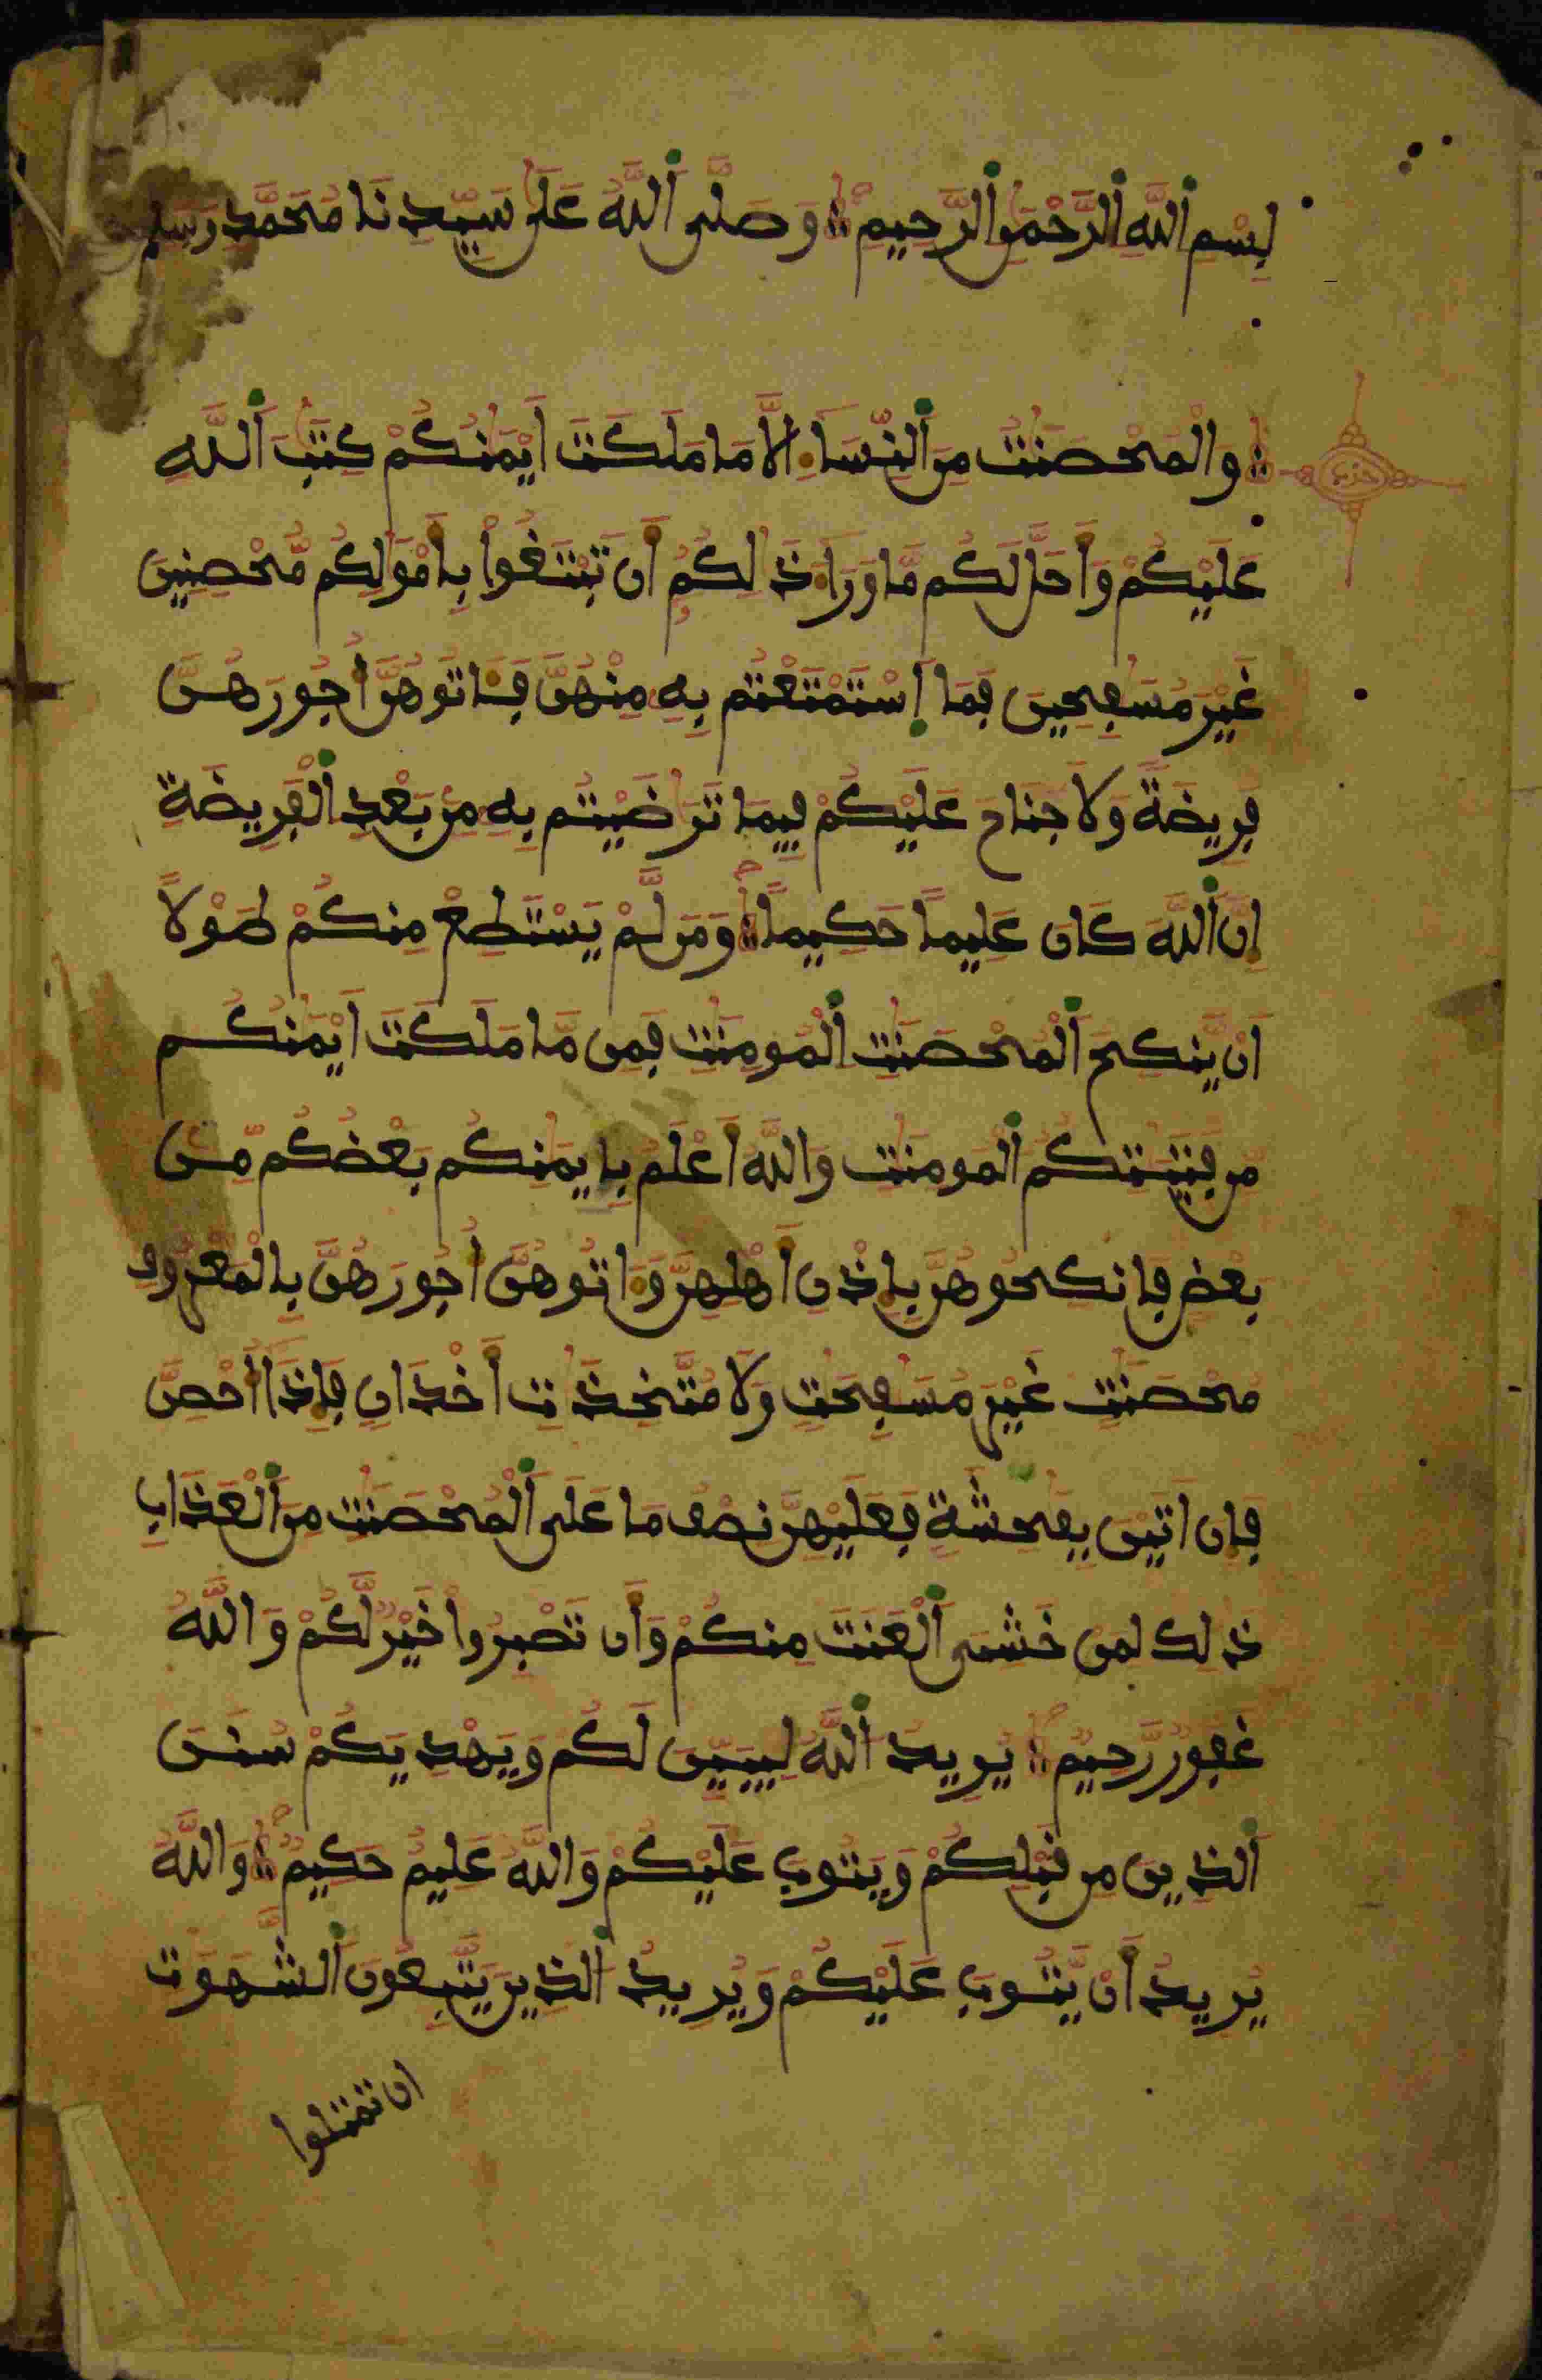 بِسْمِ اللَّهِ الرَّحْمَٰنِ الرَّحِيمِ وَصَلَّى اللَّهُ عَلَى سَيِّدِنَا مُحَمَّدٍ وَسَلَّمَ
وَالْمُحْصَنَٰتُ مِنَ النِّسَاءِ الَّا مَا مَلَكَتَ اَيْمَٰنُكُمْ كِتَٰبَ اَللَّهِ
عَلَيْكُمْ وَأَحَلَّ لَكُم مَّا وَرَاءَ ذَٰلِكُمُ أَن تَبْتَغُوا بِأَمْوَٰلِكُم مُّحْصِنِينَ
غَيْرَ مُسَٰفِحِينَ فَمَا اَسْتَمْتَعْتُم بِهِ مِنْهُنَّ فَـَٔاتُوهُنَّ أُجُورَهُنَّ
فَرِيضَةً وَلَا جُنَاحَ عَلَيْكُمْ فِيمَا تَرَٰضَيْتُم بِهِ مِنۢ بَعْدِ اِلْفَرِيضَةِ
اِنَّ اَللَّهَ كَانَ عَلِيماً حَكِيماً وَمَن لَّمْ يَسْتَطِعْ مِنكُمْ طَوْلًا
اَنْ يَّنكِحَ اَلْمُحْصَنَٰتِ اِلْمُومِنَٰتِ فَمِن مَّا مَلَكَتَ اَيْمَٰنُكُم
مِّن فَتَيَٰتِكُمُ الْمُومِنَٰتِ وَاللَّهُ أَعْلَمُ بِإِيمَٰنِكُم بَعْضُكُم مِّنۢ
بَعْضٍ فَانكِحُوهُنَّ بِإِذْنِ أَهْلِهِنَّ وَءَاتُوهُنَّ أُجُورَهُنَّ بِالْمَعْرُوفِ
مُحْصَنَٰتٍ غَيْرَ مُسَٰفِحَٰتٍ وَلَا مُتَّخِذَٰتِ أَخْدَانٍ فَإِذَا أُحْصِنَّ
فَإِنَ اَتَيْنَ بِفَٰحِشَةٍ فَعَلَيْهِنَّ نِصْفُ مَا عَلَى اَلْمُحْصَنَٰتِ مِنَ اَلْعَذَابِ
ذَٰلِكَ لِمَنْ خَشِيَ اَلْعَنَتَ مِنكُمْ وَأَن تَصْبِرُوا خَيْرٌ لَّكُمْ وَاللَّهُ
غَفُورٌ رَّحِيمٌ يُرِيدُ اُللَّهُ لِيُبَيِّنَ لَكُمْ وَيَهْدِيَكُمْ سُنَنَ
اَلذِينَ مِن قَبْلِكُمْ وَيَتُوبَ عَلَيْكُمْ وَاللَّهُ عَلِيمٌ حَكِيمٌ وَاللَّهُ
يُرِيدُ أَنْ يَّتُوبَ عَلَيْكُمْ وَيُرِيدُ اُلذِينَ يَتَّبِعُونَ اَلشَّهَوَٰتِ
ان تميلوا
حزب